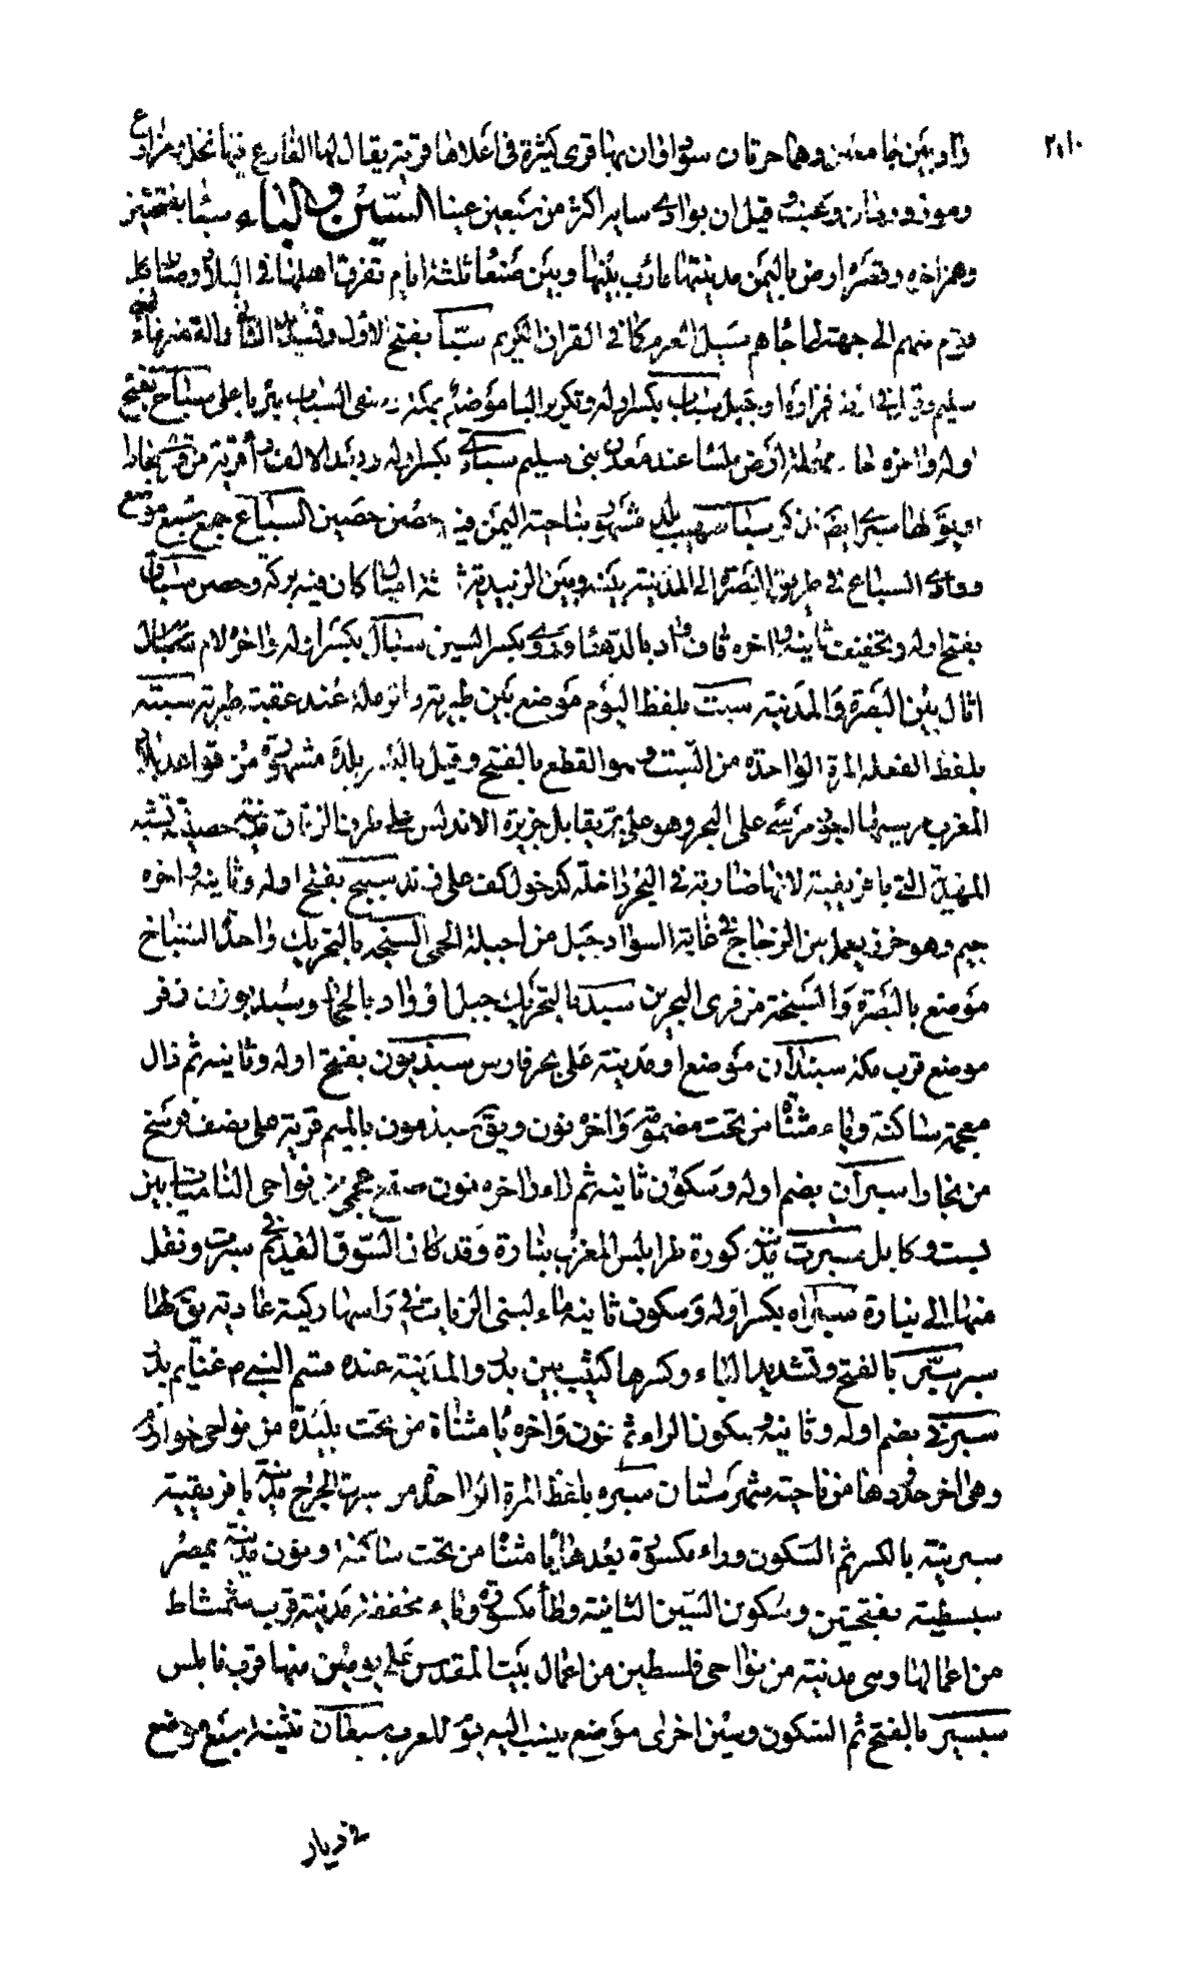 ٢١٠
واد بين حاميتين وهما حرتان سوداوان بها قرى كثيرة في اعلاها قرية يقال لها الفارع فيها نخل ومزارع
وموز ورمان وعنب وقيل ان بوادي ساير اكثر من سبعين عينا السين والباء سبا بفتحتين
وهمز اخره وقصره ارض باليمن مدينتها مارب بينها وبين صنعا ثلثة ايام تفرق اهلها في البلاد وصار كل
قوم منهم الى جهة لما جاهم سيل العرم كما في القران الكريم سبا بفتح الاول وتشديد الثاني والقصر
سليم وقيل في فزاره او جبل سباب بكسر اوله وتكرير البا موضع بمكة سباح بفتح
اوله واخره حا ارض ملسا عند معدن بني سليم سباري بكسر اوله وبعد الالف را قرية من بخارا
ويق لها سبيرى ايضا سبا صهيب بلد مشهور بناحية اليمن فيه حصن حصين السباع جمع سبع موضع
ووادي السباع في طريق البصرة الى المدينة بينه وبين الزبيدية ثلثة اميال كان فيه بركة وحصن سباق
بفتح اوله وتخفيف ثانيه واخره قاف واد بالدهنا وروى بكسر السين سبال بكسر اوله واخره لام سبال
اثال بين البصرة والمدينة سبت بلفظ اليوم موضع بين طبرية والرملة عند عقبة طبرية سبتة
بلفظ الفعلة المرة الواحدة من السبت وهو القطع بالفتح وقيل بالكسر بلدة مشهورة من قواعد بلاد
المغرب مرسيها اجود مرسى على البحر وهو على بر يقابل جزيرة الاندلس على طرف الزقاق مدينة حصينة تشبه
المهدية التي بافريقية لانها ضاربة في البحر داخلة كدخول كف على زند سبج بفتح اوله وثانيه واخره
جيم وهو خرز يعمل من الزجاج في غاية السواد جبل من اجبلة الحمى السبخة بالتحريك واحدة السباخ
موضع بالبصرة والسبخة من قرى البحرين سبد بالتحريك جبل او واد بالحجاز وسبد بوزن زفر
موضع قرب مكة سبذان موضع او مدينة على بحر فارس سبذيون بفتح اوله وثانيه ثم ذال
معجمة ساكنة وياء مثناة من تحت مضمومة واخره نون ويق سبذمون بالميم قرية على نصف فرسخ
من بخارا سبران بضم اوله وسكون ثانيه ثم راء واخره نون صقع عجمي من نواحي الباميان بين
بست وكابل سبرت مدينة كورة طرابلس المغرب بنارة وقد كان السوق القديم سبرت ونقل
منها الى بنارة سبراه بكسر اوله وسكون ثانيه ماء لبني الرباب في راسها ركية عادية يق لها
سبر سبر بالفتح وتشديد الباء وكسرها كثيب بين بدر والمدينة عنده قسم النبي م غنايم بدر
سبرني بضم اوله وثانيه وسكون الراء ثم نون واخره يا مثناة من تحت بليدة من نواحي خوارزم
وهي اخر حدودها من ناحية شهرستان سبره بلفظ المرة الواحدة من سبرت الجرح مدينة بافريقية
سبرينه بالكسر ثم السكون وراء مكسورة بعدها يا مثناة من تحت ساكنة ونون مدينة بمصر
سبسطيه بفتحتين وسكون السين الثانية وطا مكسورة وياء مخففة مدينة قرب شمشاط
من اعمالها وهي مدينة من نواحي فلسطين من اعمال بيت المقدس على يومين منها قرب نابلس
سبسير بالفتح ثم السكون وسين اخرى موضع ينسب اليه يوم للعرب سبعان تثنية سبع موضع
في ديار